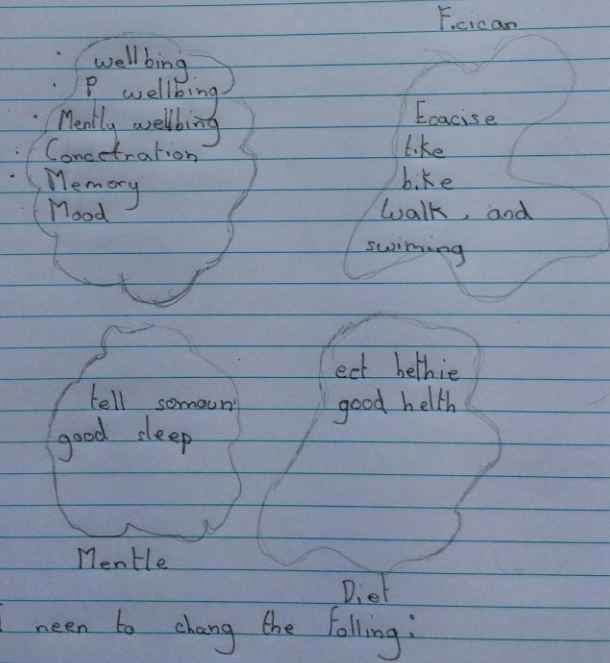 wellbing
P wellbing
Mently wellbing
Concetration
Memory
Mood
Ficican
Ecacise
like
bike
Walk, and
swiming
tell somoun
good sleep
Mentle
ect hethie
good helth
Diet
I neen to chang the folling: